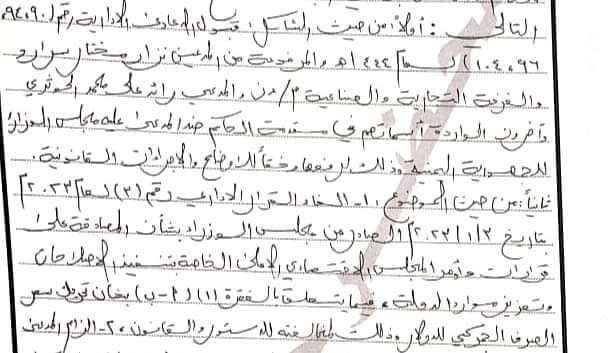 التالي : أولاً : من حيث الشكل : قبول الدعاوى الإدارية رقم (٩٠ ، ٩٤ ،
٩٦ ، ١٠٤) لسنة ١٤٤٤هـ والمرفوعة من المدعين نزار مختار
والغرفة التجارية والصناعية م/عدن والمدعي رائد علي محمد الحوثري
وآخرون الواردة أسمائهم في مقدمة الحكم ضد المدعى عليه مجلس الوزراء
للجمهورية اليمنية وذلك لرفعها وفقاً للأوضاع والإجراءات القانونية .
ثانياً : من حيث الموضوع : ١- الغاء القرار الإداري رقم (٣) لسنة ٢٠٢٣م
بتاريخ ٢٠٢٣/١/٣م الصادر من مجلس الوزراء بشأن المصادقة على
قرارات المجلس الاقتصادي الأعلى الخاصة بتنفيذ الإصلاحات
وتعزيز موارد الدولة ، فيما يتعلق بالفقرة (١) (أ - ب) بشأن تحريك سعر
الصرف الجمركي للدولار وذلك لمخالفته للدستور والقانون ، ٢- الزام المدعى